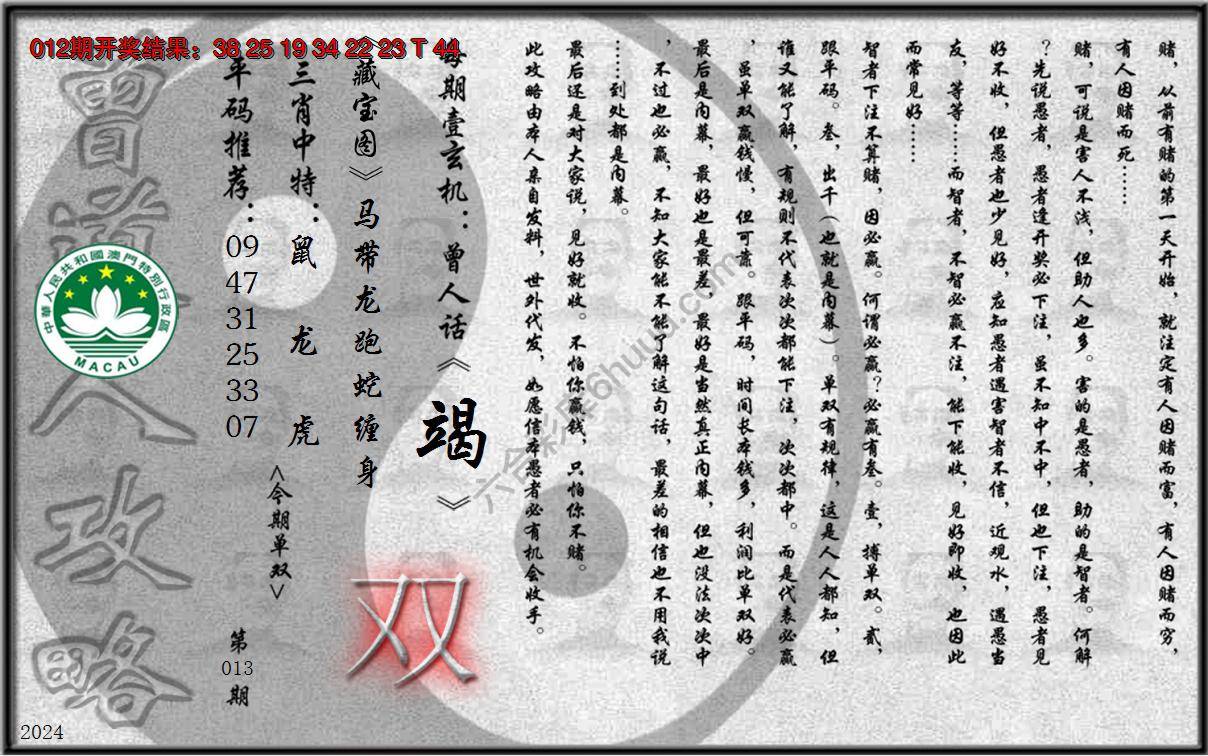 012期开奖结果：38 25 19 34 22 23 T 44
赌，从前有赌的第一天开始，就注定有人因赌而富，有人因赌而穷，
有人因赌而死……
赌，可说是害人不浅，但助人也多。害的是愚者，助的是智者。何解
？先说愚者，愚者逢开奖必下注，虽不知中不中，但也下注，愚者见
好不收，但愚者也少见好，应知愚者遇害智者不信，近观水，遇愚当
友，等等……而智者，不智必赢不注，能下能收，见好即收，也因此
而常见好……
智者下注不算赌，因必赢。何谓必赢？必赢有叁。壹，搏单双。贰，
跟平码。叁，出千（也就是内幕）。单双有规律，这是人人都知，但
谁又能了解，有规则不代表次次都能下注，次次都中。而是代表必赢
，虽单双赢钱慢，但可靠。跟平码，时间长本钱多，利润比单双好。
最后是内幕，最好也是最差，最好是当然真正内幕，但也没法次次中
，不过也必赢，不知大家能不能了解这句话，最差的相信也不用我说
……到处都是内幕。
最后还是对大家说，见好就收。不怕你赢钱，只怕你不赌。
此攻略由本人亲自发料，世外代发，如愿信本愚者必有机会收手。
每期壹玄机：曾人话《竭》
《藏宝图》马带龙跑蛇缠身
双
三肖中特：鼠 龙 虎
<今期单双>
平码推荐：09 47 31 25 33 07
第013期
曾道人攻略
中華人民共和國澳門特別行政區
MACAU
六合彩库6huuu.com
2024